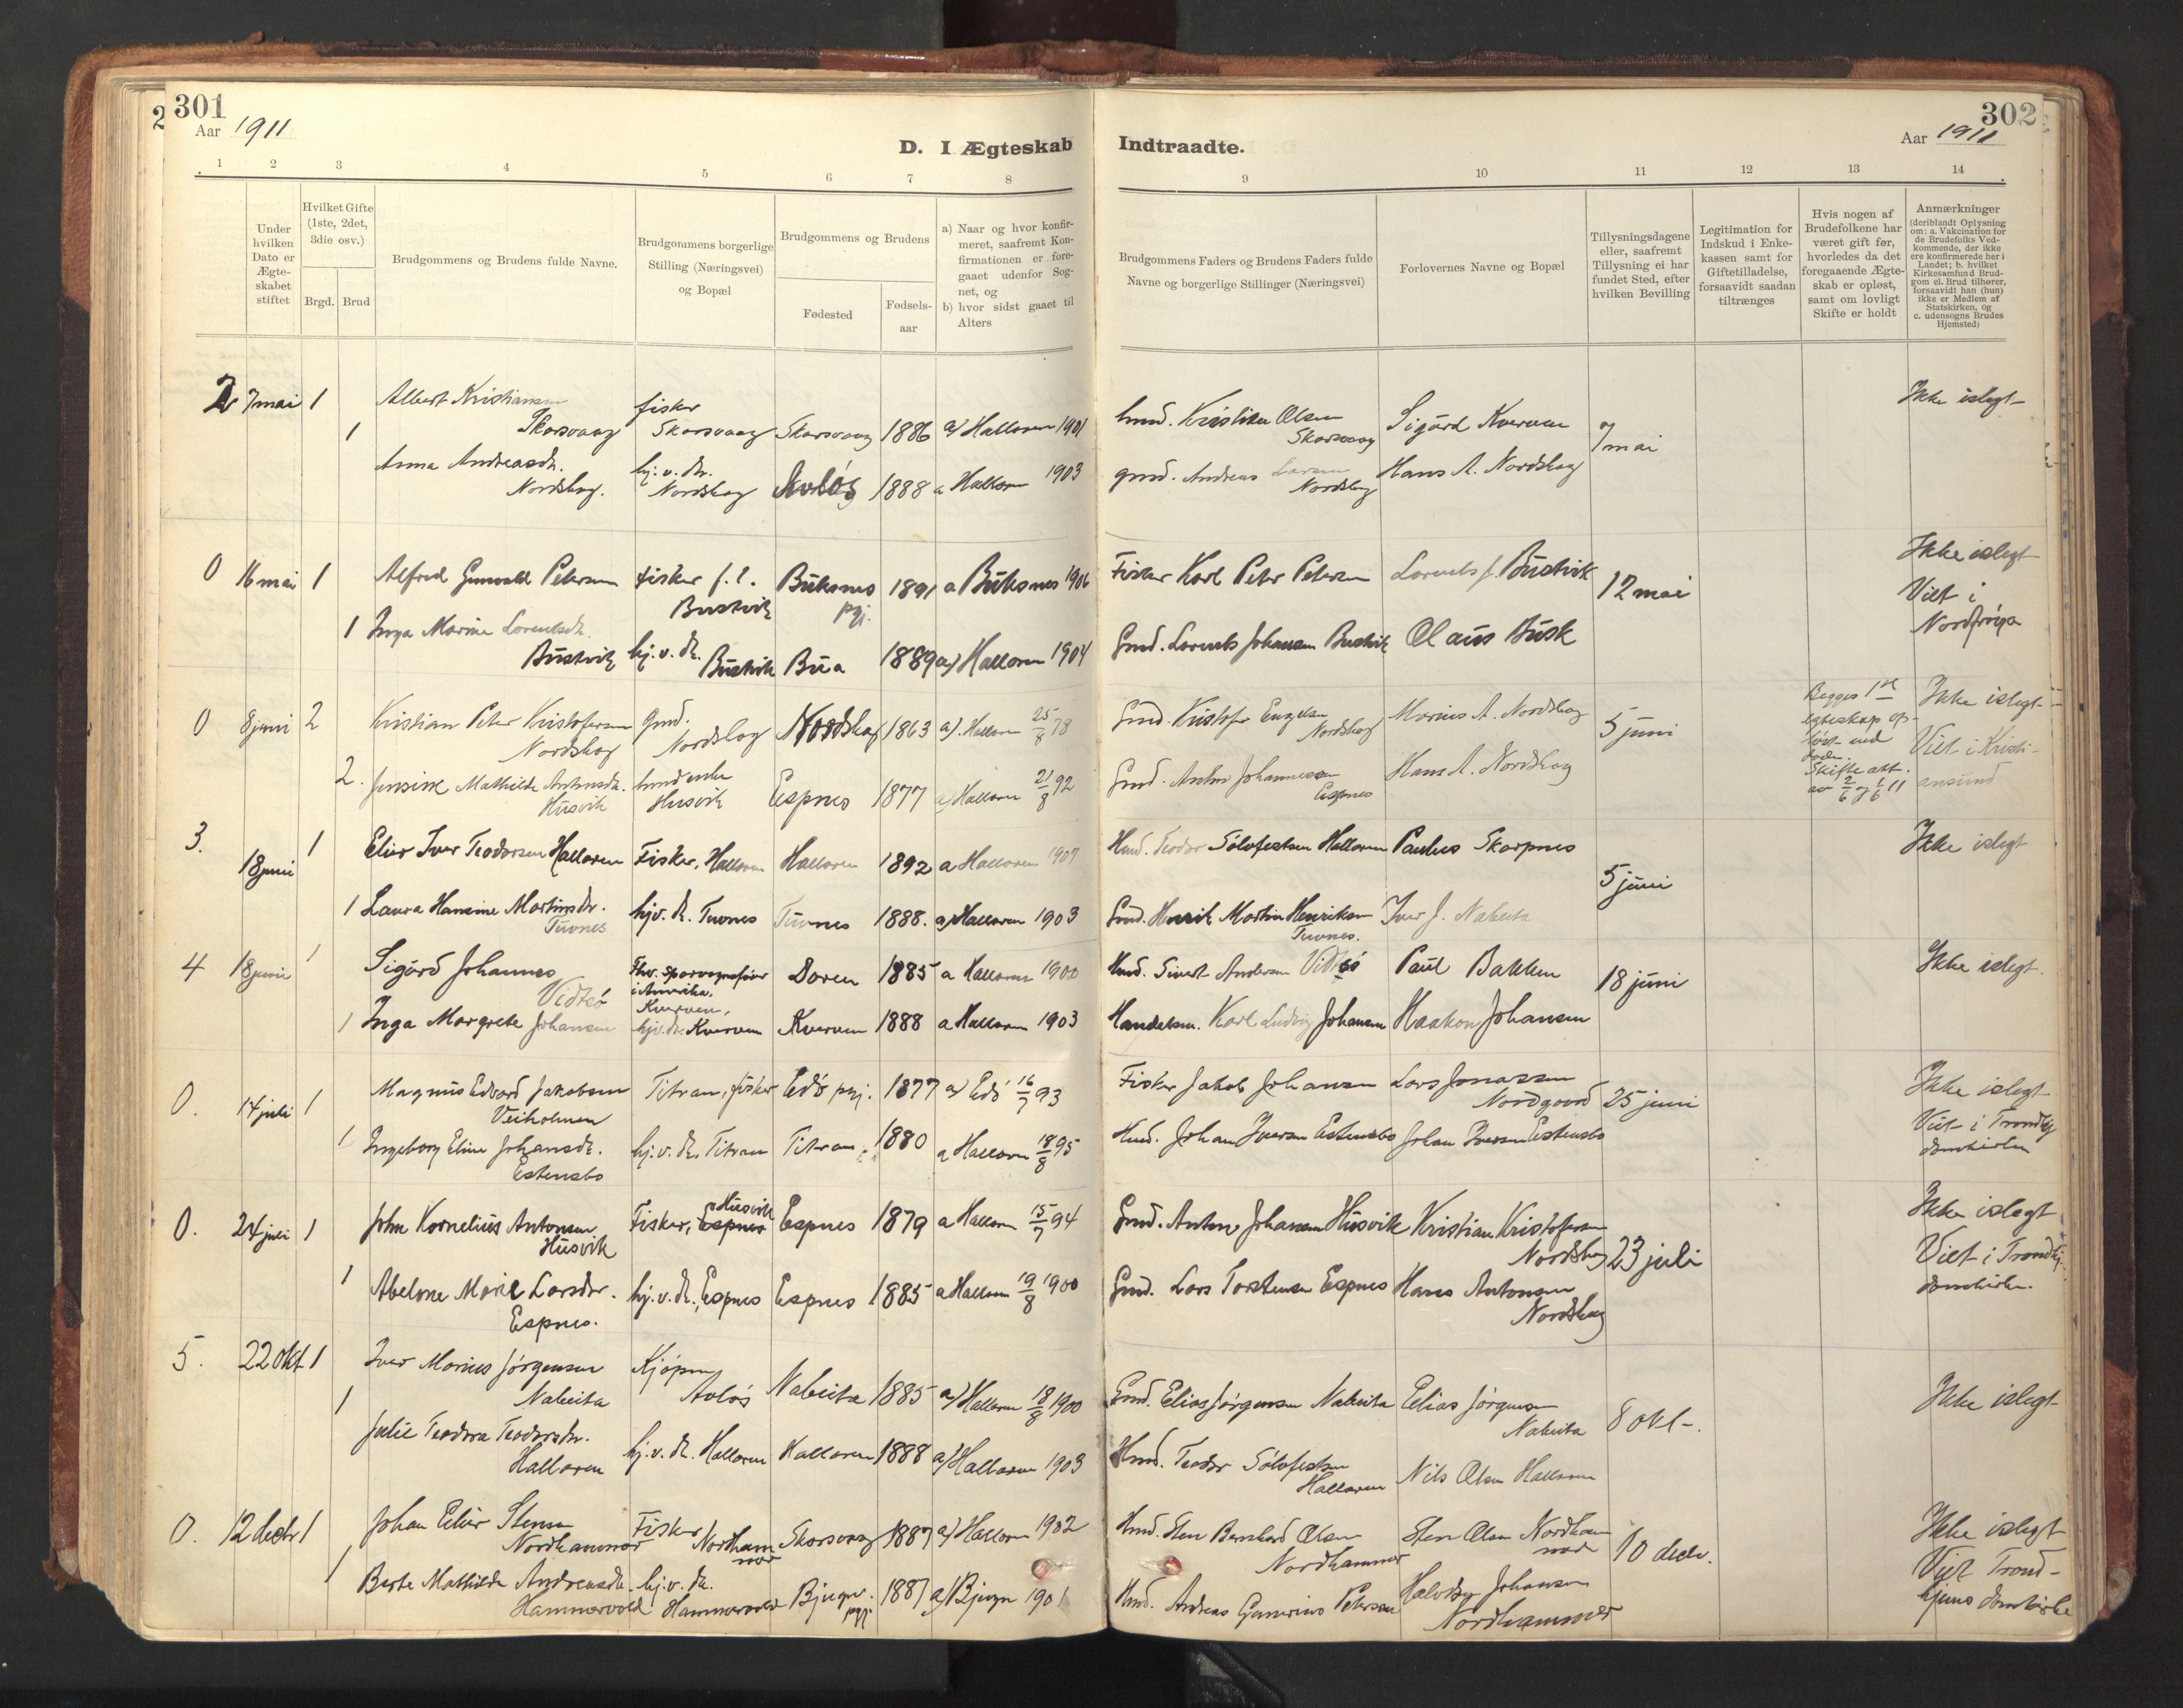 301
Aar 1911
D. I Ægteskab
1 2 3 4 5 6 7 8
Under hvilken Dato er Ægte-skabet stiftet
Hvilket Gifte (1ste, 2det, 3die osv.)
Brgd. Brud
Brudgommens og Brudens fulde Navne.
Brudgommens borgerlige Stilling (Næringsvei) og Bopæl
Brudgommens og Brudens
Fødested
Fødsels-aar
a) Naar og hvor konfir-meret, saafremt Kon-firmationen er fore-gaaet udenfor Sog-net, og
b) hvor sidst gaaet til Alters
2 7 mai 1 Albert Kristiansen Skarsvaag fisker Skarsvaag Skarsvaag 1886 a) Halloren 1901
1 Anna Andreasdr. Nordskag. hj.v. dr. Nordskag Avløs 1888 a Halloren 1903
0 16 mai 1 Alfred Gunvald Petersen fisker f. t. Bustvik Buksnes pgj. 1891 a Buksnes 1906
1 Inga Marine Lorentsdr. Bustvik hj.v. dr. Bustvik Bua 1889 a) Halloren 1904
0 8 juni 2 Kristian Peter Kristofersen Nordskag gmd. Nordskag Nordskag 1863 a). Halloren 25/8 78
2. Jensine Mathilde Antonsdr. Husvik hmd enke Husvik Espnes 1877 a) Halloren 21/8 92
3. 18 juni 1 Elier Iver Teodorsen Halloren Fisker, Halloren Halloren 1892 a Halloren 1907
1 Laura Hansine Martinsdr. Tuvnes hj.v. dr. Tuvnes Tuvnes 1888. a) Halloren 1903
4 18 juni 1 Sigurd Johannes Vidtsø Fhv. sporvognsfører i Amerika. Kverven, Doren 1885 a Halloren 1900
1 Inga Margrete Johansen hj.v. dr. Kverven Kverven 1888 a Halloren 1903
0. 14 juli 1 Magnus Edvard Jakobsen Veiholmen Titran, fisker Edø pgj. 1877 a) Edø 16/7 93
1 Ingeborg Eline Johansdr. Estensbo hj.v. dr. Titran Titran 1880 a Halloren 18/8 95
0. 24 juli 1 John Kornelius Antonsen Husvik Fisker, Espnes Husvik Espnes 1879 a Halloren 15/7 94
1 Abelone Marie Larsdr. Espnes. hj.v. dr., Espnes Espnes 1885 a Halloren 19/8 1900
5. 22 okt. 1 Iver Marius Jørgensen Nabeita Kjøpm. Avløs Nabeita 1885 a) Halloren 18/8 1900
1 Julie Teodora Teodorsdr. Halloren hj.v. dr. Halloren Halloren 1888 a) Halloren 1903
0. 12 decbr 1 Johan Elier Stensen Nordhammer Fisker Nordhammer Skarsvaag 1887 a) Halloren 1902
1 Berte Mathilde Andreasdr. Hammervold hj.v. dr. Hammervold Bjugn pgj. 1887 a) Bjugn 1901
302
Aar 1911
Indtraadte.
9 10 11 12 13 14
Brudgommens Faders og Brudens Faders fulde Navne og borgerlige Stillinger (Næringsvei)
Forlovernes Navne og Bopæl
Tillysningsdagene eller, saafremt Tillysning ei har fundet Sted, efter hvilken Bevilling
Legitimation for Indskud i Enke-kassen samt for Giftetilladelse, forsaavidt saadan tiltrænges
Hvis nogen af Brudefolkene har været gift før, hvorledes da det foregaaende Ægte-skab er opløst, samt om lovligt Skifte er holdt
Anmærkninger (deriblandt Oplysning om: a. Vakcination for de Brudefolks Ved-kommende, der ikke ere konfirmerede her i Landet; b. hvilket Kirkesamfund Brud-gom el. Brud tilhører, forsaavidt han (hun) ikke er Medlem af Statskirken, og c. udensogns Brudes Hjemsted)
hmd. Kristian Olsen Skarsvaag Sigurd Kverven 7 mai Ikke islegt
gmd. Andreas Larsen Nordskag Hans A. Nordskag
Fisker Karl Peter Petersen Lorents J. Bustvik 12 mai Ikke islegt Viet i Nordfrøya
Gmd. Lorents Johansen Bustvik Olaus Busk
Gmd. Kristofer Engelsen Nordskag Marius A. Nordskag 5 juni Begges 1ste egteskap opløst ved døden. Skifte att. av 2/6 og 1/6 11 Ikke islegt Viet i Kristiansund
Gmd. Anton Johannessen Espnes Hans A. Nordskag
Hmd. Teodor Sølvfestsen Halloren Paulus Skarpnes 5 juni Ikke islegt
Gmd. Henrik Martin Henriksen Tuvnes. Iver J. Nabeita
Hmd. Sivert Andersen Vidtsø Paul Bakken 18 juni Ikke islegt.
Handelsm. Karl Ludvig Johansen Haakon Johansen
Fisker Jakob Johansen Lars Jonassen Nordgaard 25 juni Ikke islegt Viet i Trondhj. domkirke
Hmd. Johan Iversen Estensbo Johan Iversen Estensbo
Gmd. Anton Johansen Husvik Kristian Kristofersen Nordskag 23 juli Ikke islegt Viet i Trondhj. domkirke.
Gmd. Lars Torstensen Espnes Hans Antonsen Nordskag
Gmd. Elias Jørgensen Nabeita Elias Jørgensen Nabeita 8 okt. Ikke islegt
Hmd. Teodor Sølvfestsen Halloren Nils Olsen Halloren
Hmd. Sten Bernhard Olsen Nordhammer Sten Olsen Nordhammer 10 decbr. Ikke islegt Viet Trondhjems domkirke
Hmd. Andreas Petersen Johansen Nordhammer